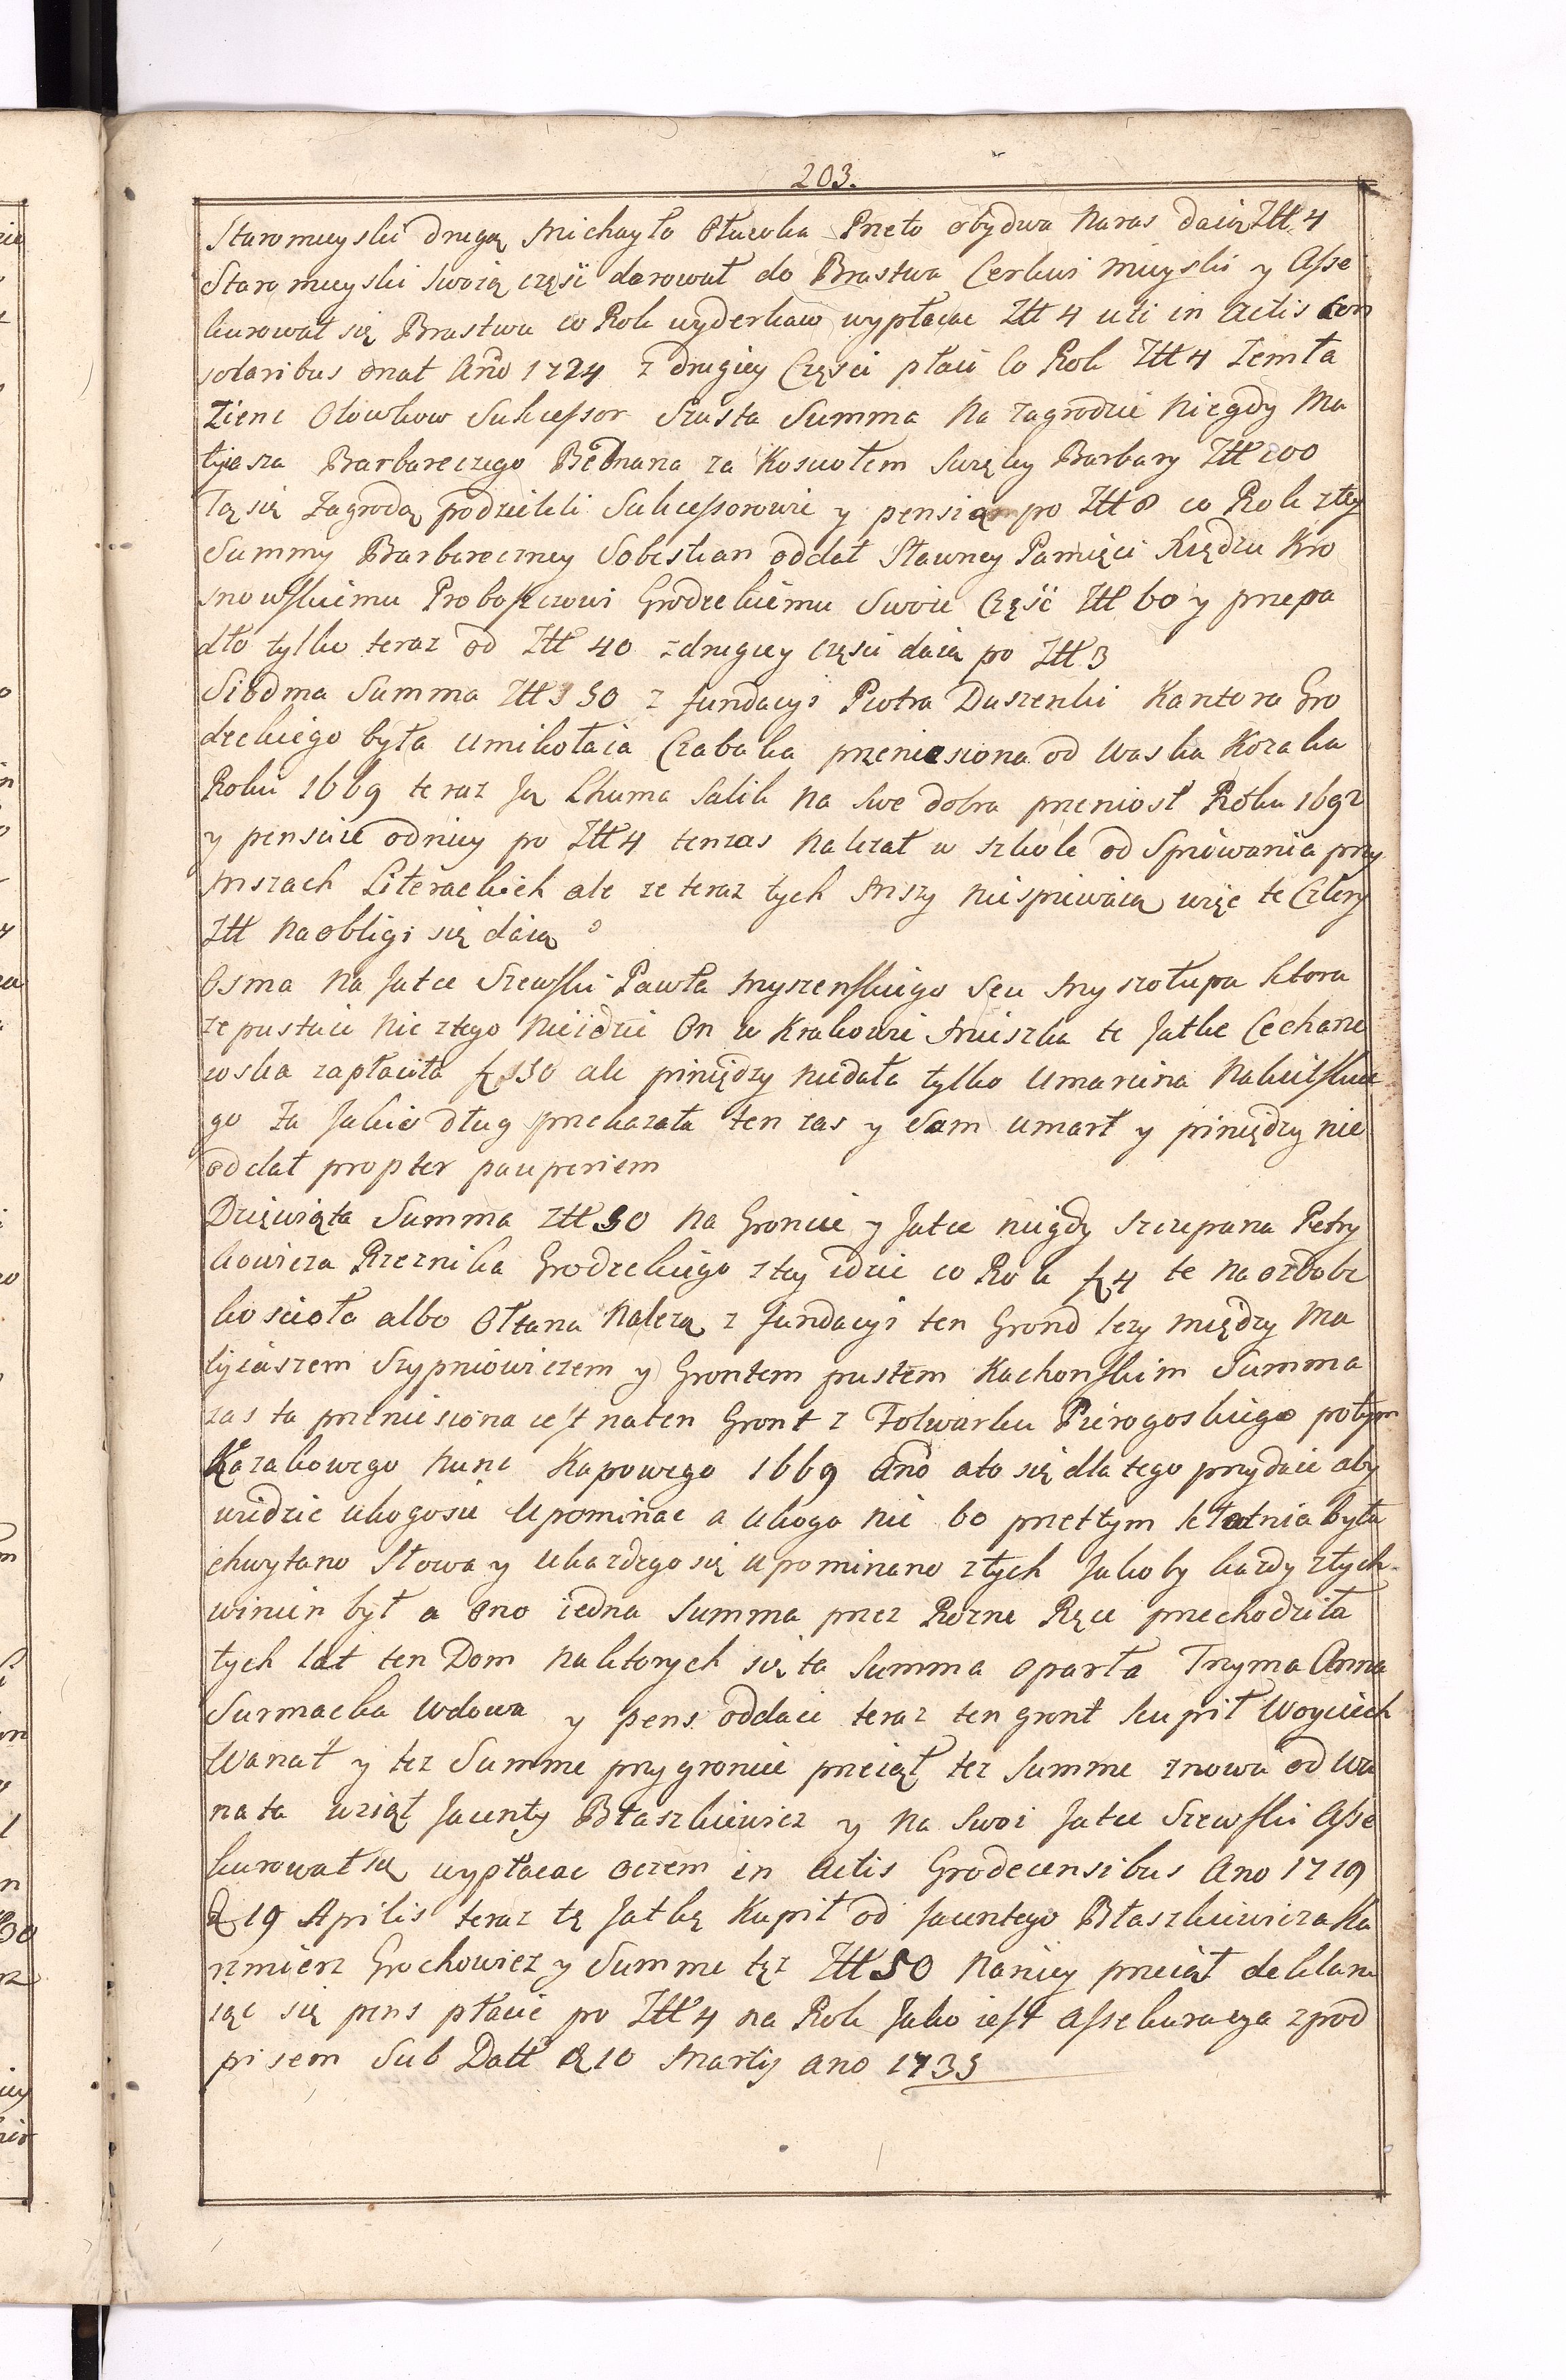 203.
Staromieyski drugą Michayło Ołuwka Przeto obydwa naras daią Złł 4
Staromieyski swoią częsc darował do Brastwa Cerkwi mieyski y Asse
kurował się Brastwu co Rok wyderkaw wypłacac Złł 4 uti in actis Con
solaribus Año 1724 z drugiey Częsci płaci Co Rok Złł 4 Zemła
Ziene Ołowkow Sukcessor Szusta Summa Na zagrodzie niegdy Ma
tyiasza Barbareczego Bednarza za Koscołem Swięty Barbary Złł 200
Tą się Zagrodą podzielili Sukcessorowie y pensią po Złł 8 co Rok z tey
Summy Barbareczney Sobestian oddał Sławney Pamięci Xiędzu Kro
snowskiemu Proboszczowi Grodzekiemu Swoie Część Złł 60 y przepa
dło tylko teraz od Złł 40 z drugiey częsci daią po Złł 3
Siodma Summa Złł 50 z fundacyi Piotra Daszenki Kantora Gro
dzekiego była u Mikołaia Czabaka przeniesiona od Waska Kozaka
Roku 1669 teraz Ją Chuma Salik na swe dobra przeniosł Roku 1692
y pensiie od niey po Złł 4 tenzas nalezał w szkole od Spiewania przy
Mszach Literackich ale ze teraz tych Mszy niespiewaią więc te Cztery
Złł na obligi się daią
Osma na Jatce Szewski Pawła Myszenskiego Seu Myszołupa ktora
ze pustuie nic z tego nieidzie On w Krakowie Mieszka te Jatke Cechane
woska zapłaciła 50 ale piniędzy niedała tylko u Marcina Nakielskie
go za Jakis dług przekazała ten zas y Sam umarł y piniędzy nie
oddał propter pauperiem
Dziewiąta Summa Złł 50 na Groncie y Jatce niegdy Szczepana Petry
kowicza Rzeznika Grodzekiego z tey idzie co Rok 4 te na ozdobe
koscioła albo Ołtarza nalezą z fundacyi ten Grond lezy między Ma
tyiaszem Szypniowiczem y Grontem pustem Kachonskim Summa
zas ta przeniesiona iest na ten Gront z Folwarku Pierogoskiego potym
Kozakowego nunc Kapowego 1669 Año a to się dla tego przydaie aby
widzic u kogosie Upominac a u kogo nie bo przettym kłotnia była
chwytano Słowa y u kazdego się upominano z tych Jakoby kazdy z tych
winien był a ono iedna Summa przez Rozne Ręce przechodziła
tych lat ten Dom na ktorych się ta Summa oparła Trzyma Anna
Surmacka Wdowa y pens oddaie teraz ten gront kupił Woyciech
Wanat y tez Summe przy groncie przeiął tez Summe znowu od Wa
nata wziął Jacenty Błaszkiewicz y na Swoi Jatce Szewski Asse
kurował się wypłacac oczem in Actis Grodecensibus Ano 1719
D 19 Aprilis teraz tę Jatkę Kupił od Jacentego Błaszkiewicza Ka
zimierz Grochowicz y Summe tęz Złł 50 Naniey przeiął deklaru
iąc się pens płacic po Złł 4 na Rok Jako iest assekuracya z pod
pisem Sub Datt D 10 Martij Ano 1735